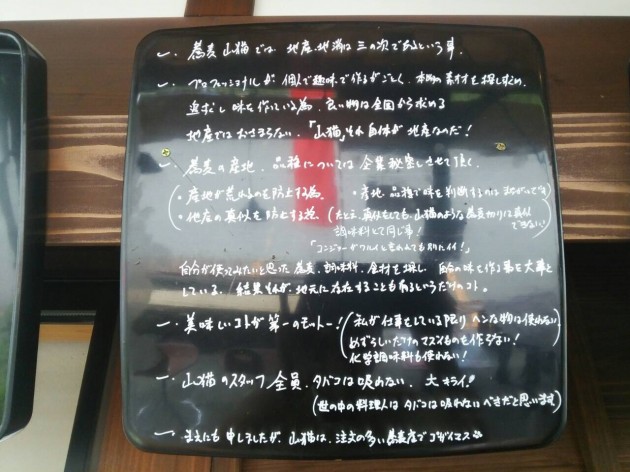 一、蕎麦 山猫では、地産地消は三の次であるという事。
一、プロフェッショナルが、個人で趣味で作るがごとく、本物の素材を探し求め、
追求し味を作っている為、良い物は全国から求める
地産ではおさまらない、「山猫」それ自体が地産なんだ!
一、蕎麦の産地、品種については企業秘密とさせて頂く、
(・産地が荒れるのを防止する為 ・産地、品種で味を判断するのはまちがいです
・他店の真似を防止する為 (たとえ、真似をしても、山猫のような蕎麦切りは真似できない!
調味料として同じ事!
自分が使ってみたいと思った蕎麦、調味料、食材を探し、自分の味を作る事を大事と
している。結果それが、地元に存在することも有るというだけのコト。
一、美味しいコトが第一のモットー!(私が仕事をしている限り ヘンな物は使わない
めずらしいだけのマズイものも作らない!
化学調味料も使わない!
一、山猫のスタッフ全員、タバコは吸わない、大キライ!
(世の中の料理人はタバコは吸わないべきだと思います)
一、まえにも申しましたが、山猫は、注文の多い蕎麦屋でゴザイマス